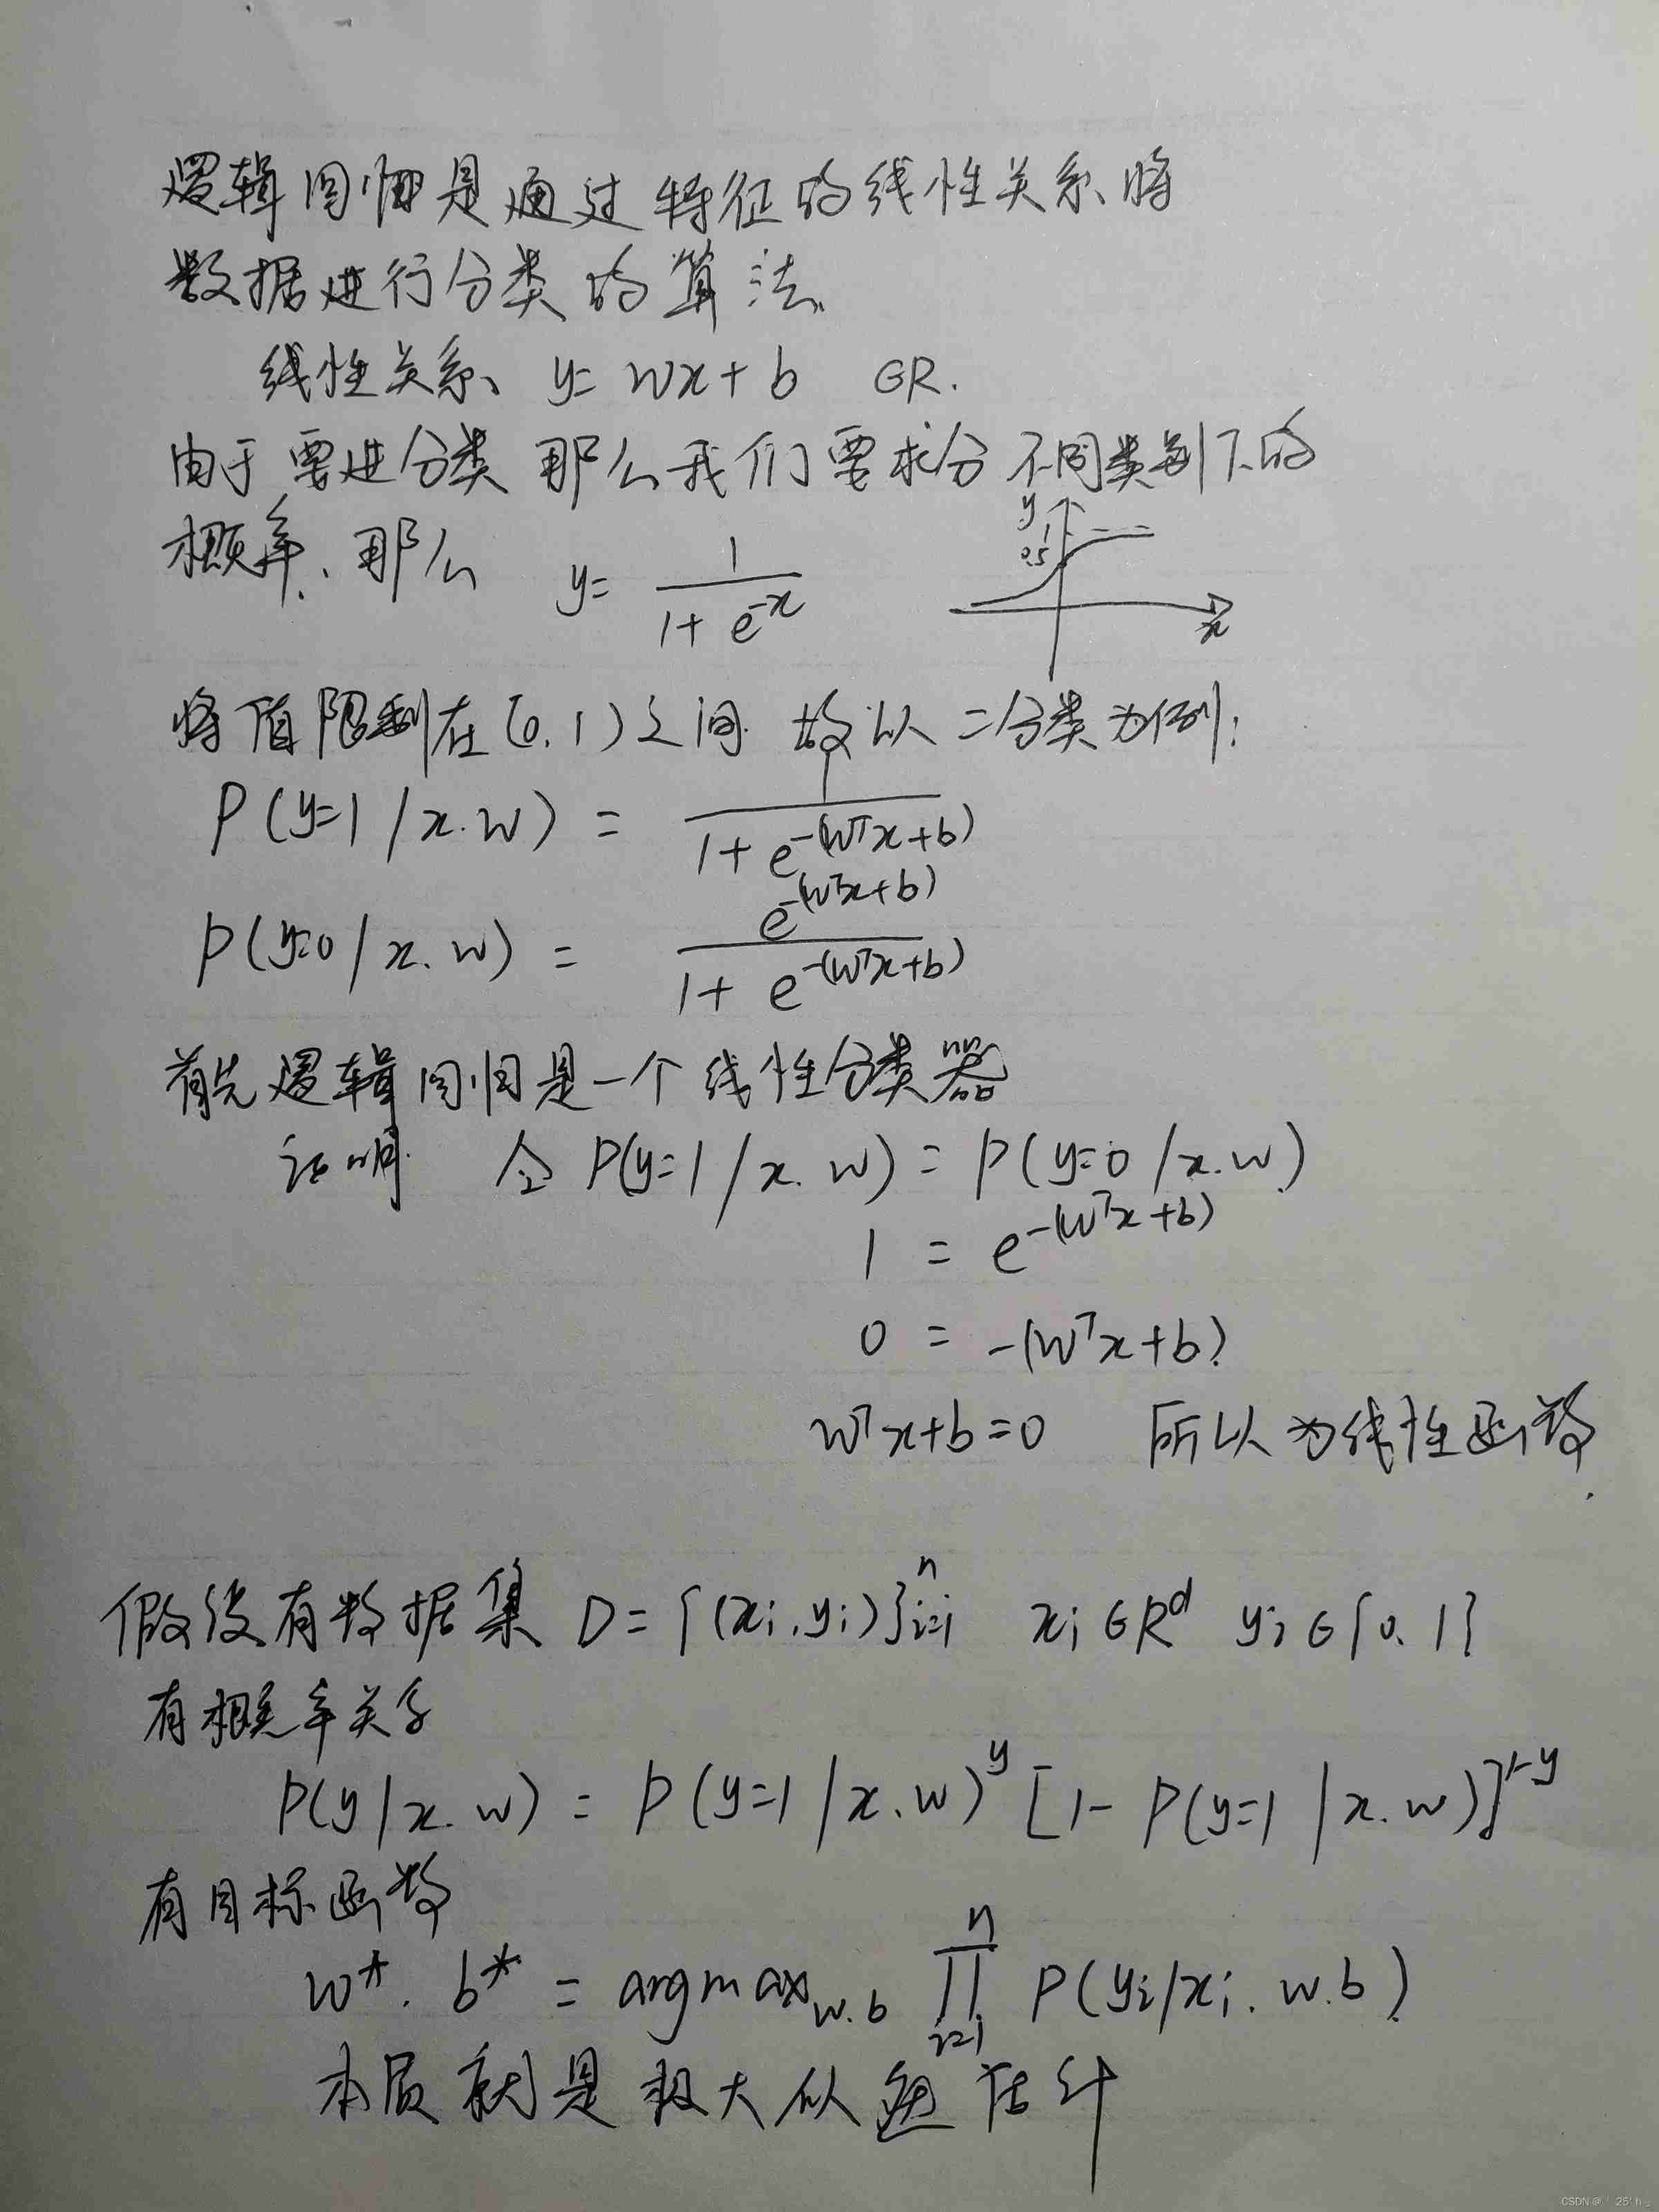 逻辑回归是通过特征的线性关系将
数据进行分类的算法
线性关系、 y= wx+b ∈R.
由于要进分类 那么我们要求分不同类别下的
概率、那么 y= 1/(1+e^{-x})
y
1
0.5
x
将值限制在(0,1)之间 故以二分类为例:
P(y=1/x.w) = 1/(1+e^{-(w^Tx+b)})
P(y=0/x.w) = e^{-(w^Tx+b)}/(1+e^{-(w^Tx+b)})
首先逻辑回归是一个线性分类器
证明. 令 P(y=1/x.w) = P(y=0/x.w)
1 = e^{-(w^Tx+b)}
0 = -(w^Tx+b)
w^Tx+b=0 所以为线性函数.
假设有数据集 D={(x_i,y_i)}_{i=1}^n x_i∈R^d y_i∈{0,1}
有概率关系
P(y/x.w) = P(y=1/x.w)^y [1-P(y=1/x.w)]^{1-y}
有目标函数
w*. b* = argmax_{w.b} ∏_{i=1}^n P(y_i/x_i.w.b)
本质就是极大似然估计
CSDN @